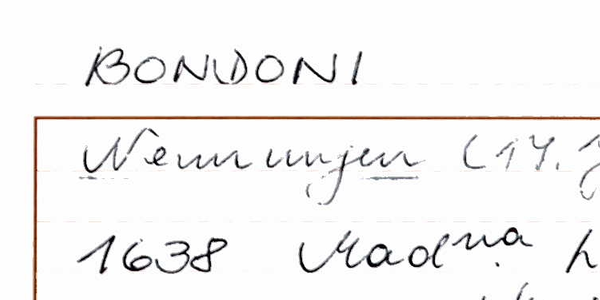 BONDONI
Nennungen (17. J
1638 Madna